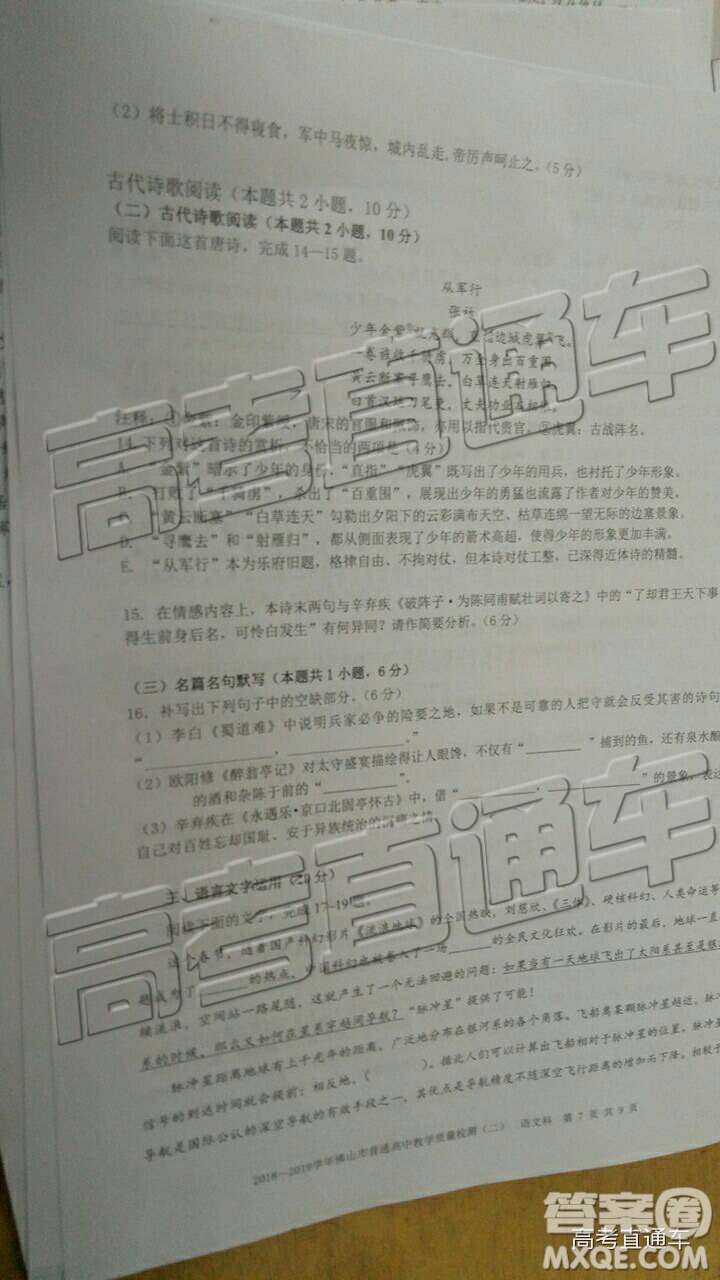 (2)将士积日不得寝食，军中马夜惊，城内乱走，帝厉声呵止之。(5分)
古代诗歌阅读（本题共2小题，10分）
（二）古代诗歌阅读（本题共2小题，10分）
阅读下面这首唐诗，完成14—15题。
从军行
张
少年金紫 直指边城虎翼飞。
一卷旌 千骑虏，万 身出百重围。
黄云断塞寻鹰去，白草连天射雁归。
丈夫功业
注释：①金紫：金印紫绶，唐宋的官服和 饰，亦用以指代贵官。②虎翼：古战阵名。
14. 下列对这首诗的赏析，不恰当的两项是（4分）
A. “金紫”暗示了少年的身份，“直指”“虎翼”既写出了少年的用兵，也衬托了少年形象。
B. 打败了“千骑虏”，杀出了“百重围”，展现出少年的勇猛也流露了作者对少年的赞美。
C. “黄云断塞”“白草连天”勾勒出夕阳下的云彩满布天空、枯草连绵一望无际的边塞景象。
D. “寻鹰去”和“射雁归”，都从侧面表现了少年的箭术高超，使得少年的形象更加丰满。
E. “从军行”本为乐府旧题，格律自由、不拘对仗，但本诗对仗工整，已深得近体诗的精髓。
15. 在情感内容上，本诗末两句与辛弃疾《破阵子·为陈同甫赋壮词以寄之》中的“了却君王天下事
得生前身后名，可怜白发生”有何异同？请作简要分析。（6分）
（三）名篇名句默写（本题共1小题，6分）
16. 补写出下列句子中的空缺部分。（6分）
（1）李白《蜀道难》中说明兵家必争的险要之地，如果不是可靠的人把守就会反受其害的诗句
“________，________。”
（2）欧阳修《醉翁亭记》对太守盛宴描绘得让人眼馋，不仅有“________”捕到的鱼，还有泉水酿
的酒和杂陈于前的“________”。
（3）辛弃疾在《永遇乐·京口北固亭怀古》中，借“________，________”的景象，表达
自己对百姓忘却国耻、安于异族统治的沉痛之情
、语言文字运用（20分）
阅读下面的文字，完成17-19题。
这个春节，随着国产科幻影片《流浪地球》的全国热映，刘慈欣、《三体》、硬核科幻、人类命运等
题成为了______的热点，中国科幻也被卷入了一场______的全民文化狂欢。在影片的最后，地球一直
续流浪，空间站一路尾随，这就产生了一个无法回避的问题：如果当有一天地球飞出了太阳系甚至是银
系的时候，那么又如何在星系穿越间导航？“脉冲星”提供了可能！
脉冲星距离地球有上千光年的距离，广泛地分布在银河系的各个角落。飞船离某颗脉冲星越近，脉冲
信号的到达时间就会提前；相反地，（　　）。据此人们可以计算出飞船相对于脉冲星的位置。脉冲
导航是国际公认的深空导航的有效手段之一，其优点是导航精度不随深空飞行距离的增加而下降，特别
2018～2019学年佛山市普通高中教学质量检测（二） 语文科 第 7 页 共 9 页
高考直通车
高考直通车
答案圈
高考直通车
MXQE.COM